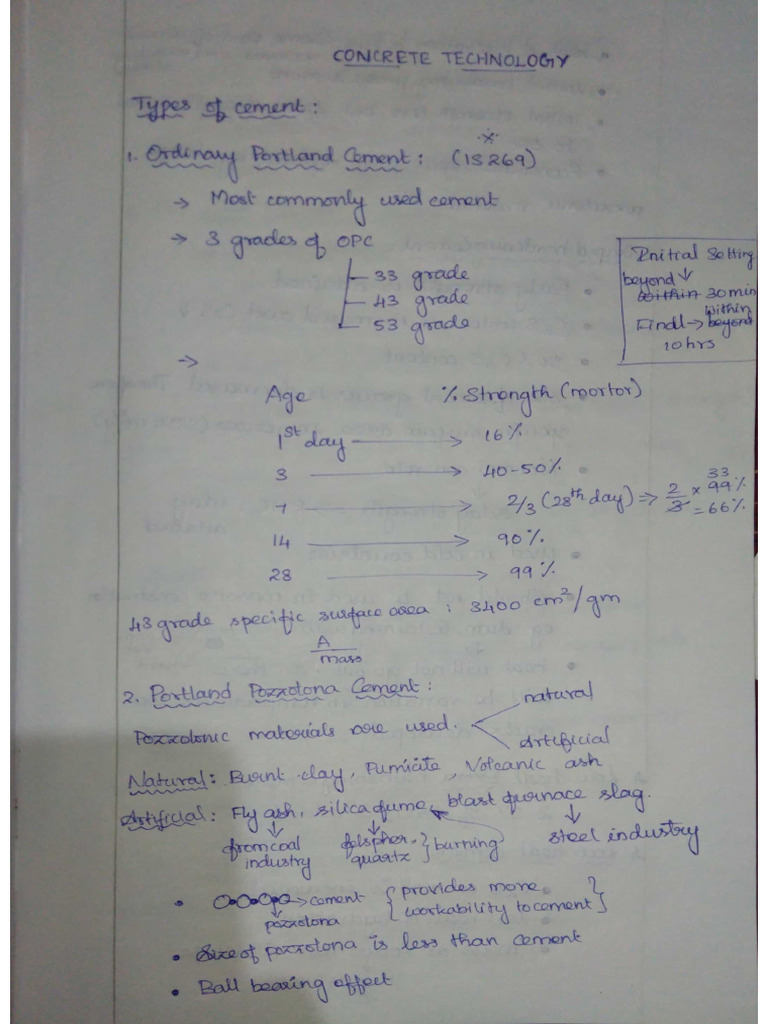 CONCRETE TECHNOLOGY
Types of cement :
1. Ordinary Portland Cement : (IS 269)
→ Most commonly used cement
→ 3 grades of OPC
33 grade
43 grade
53 grade
Initial Setting
beyond ↓
within 30 min
within
Final → beyond
10 hrs
→
Age % Strength (mortor)
1st day → 16%
3 → 40-50%
7 → 2/3 (28th day) ⇒ 2/3 × 99% 33
= 66%
14 → 90%
28 → 99%
43 grade specific surface area : 3400 cm²/gm
A
mass
2. Portland Pozzolona Cement :
natural
Pozzolonic materials are used.
Artificial
Natural : Burnt clay, Pumicite, Volcanic ash
Artificial : Fly ash, silica fume, blast furnace slag.
from coal industry
felspher, quartz } burning
steel industry
• → cement { provides more
workability to cement }
pozzolona
• Size of pozzolona is less than cement
• Ball bearing effect